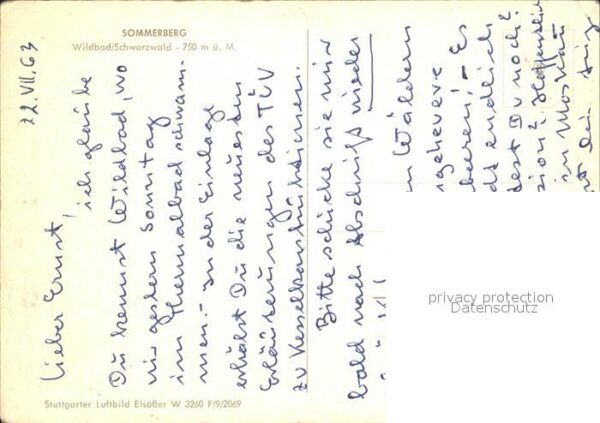 SOMMERBERG
Wildbad/Schwarzwald - 750 m ü. M.
22.VII.63
Lieber Ernst,
ich glaube
Du kennst Wildbad, wo
wir gestern Sonntag
im Thermalbad schwam-
men. - In der Einlage
erhälst Du die neuesten
Erläuterungen des TÜV
zu
Bitte schicke sie mir
bald nach Abschrift wieder
Wäldern
ngeheuere
beeren! - Es
endlich
dest Du noch?
sion?
in Moskau
privacy protection
Datenschutz
Stuttgarter Luftbild Elsäßer W 3260 F/9/2069